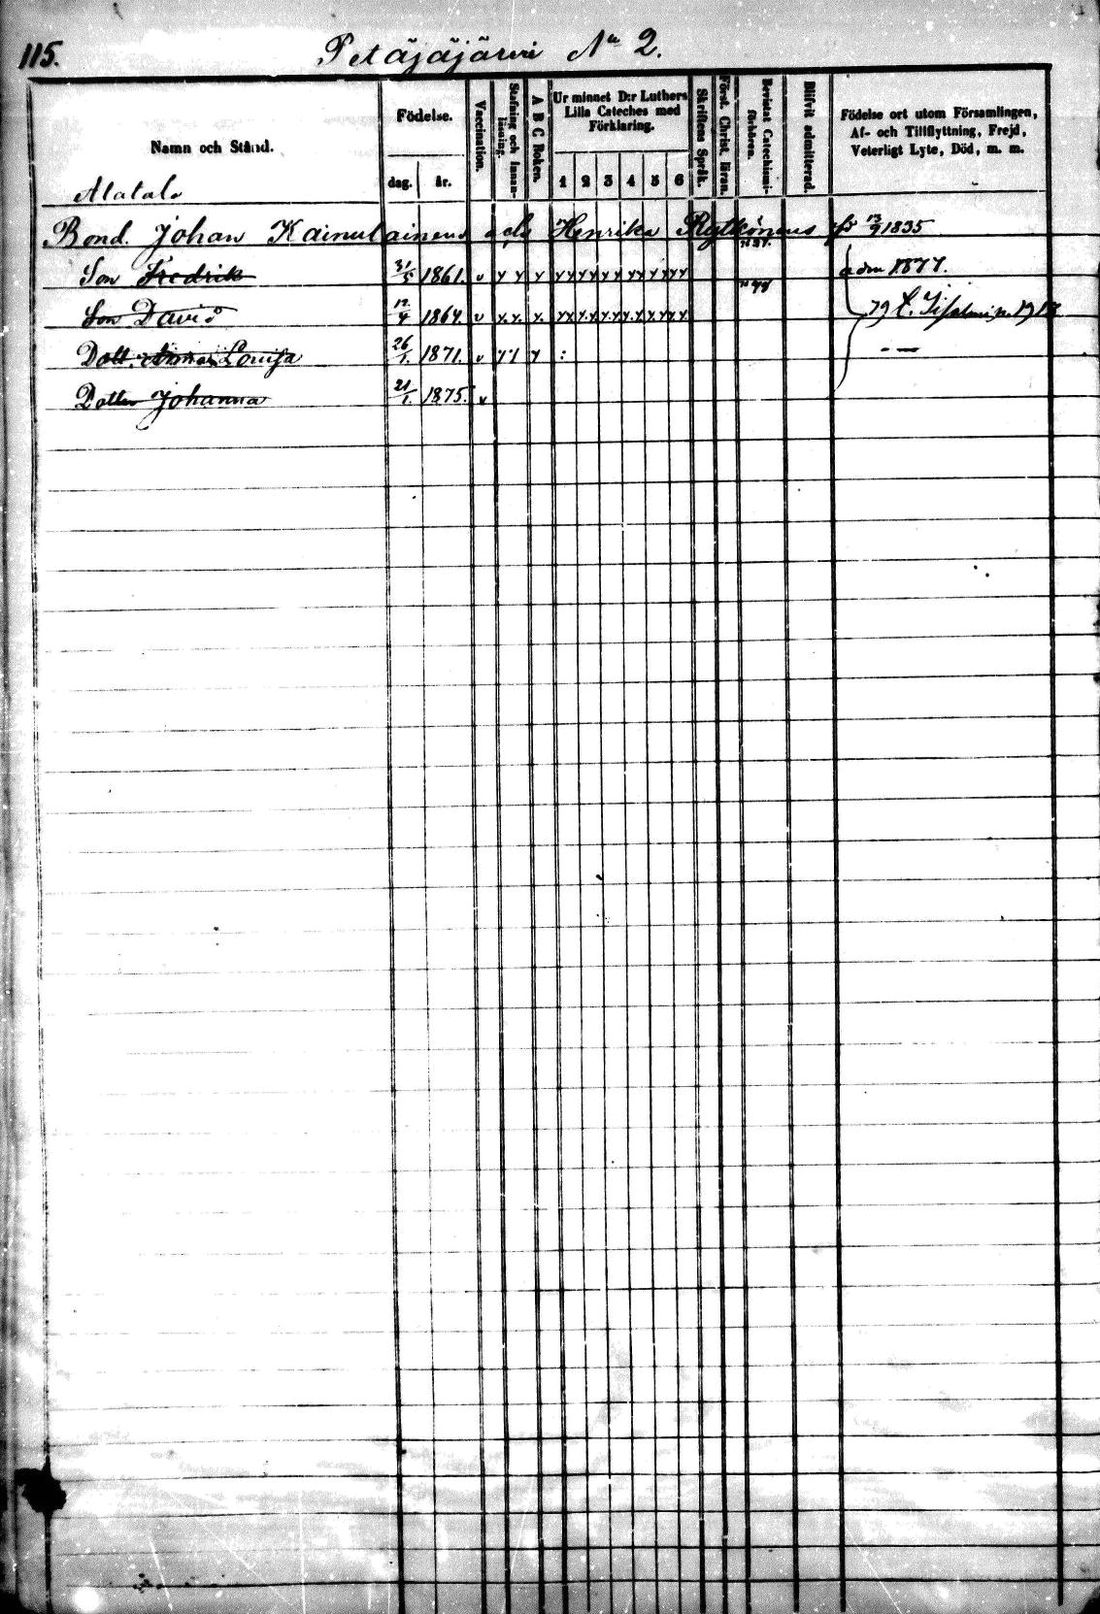 115.
Petäjäjärvi No 2.
Namn och Stånd.
Födelse.
dag. år.
Vaccination.
Stafning och Innanläsning.
A B C Boken.
Ur minnet D:r Luthers Lilla Cateches med Förklaring.
1 2 3 4 5 6
Skriftens Språk.
Först. Christ. läran.
Bevistat Catechismiförhören.
Blifvit admitterad.
Födelse ort utom Församlingen,
Af- och Tillflyttning, Frejd,
Veterligt Lyte, Död, m. m.
Alatalo
Bond. Johan Kainulainens och Henrika Rytkönens 13/9 1835
Son Fredrik 31/5 1861. v y y y yy yy yy yy yy yy adm 1877.
Son David 12/4 1864. v y. y. y. yy yy yy yy yy yy 79
Dott. Anna Lovisa 26/1. 1871. v y 1 y : - —
Dotter Johanna 21/1. 1875. v